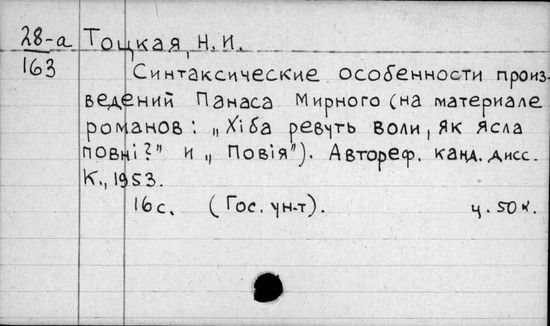 28-а Тоцкая, Н. И.
163 Синтаксические особенности произ-
ведений Панаса Мирного (на материале
романов: „Хіба ревуть воли, як ясла
повні?" и „Повія"). Автореф. канд. дисс.
К., 1953.
16с. (Гос. ун-т). ц. 50 к.